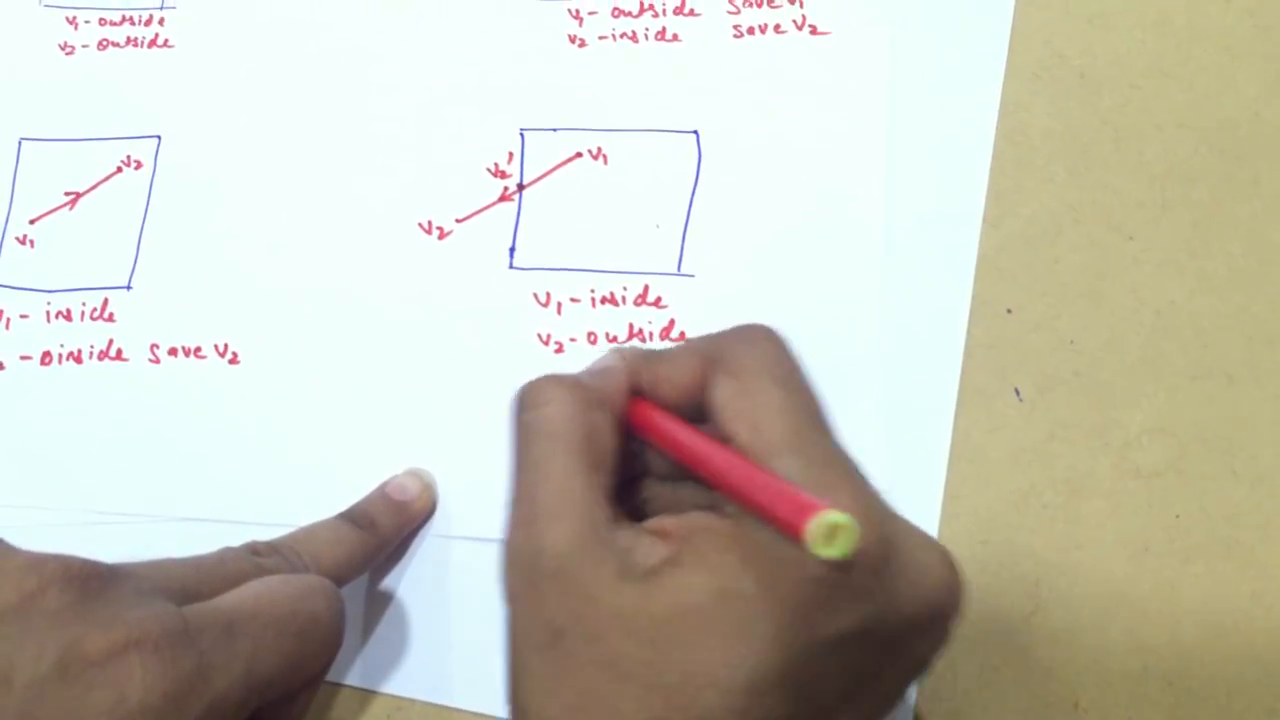 V1 - outside
V2 - outside
V1 - outside save V1'
V2 - inside save V2
V2
V1
V1 - inside
- inside save V2
V2'
V1
V2
V1 - inside
V2 - outside